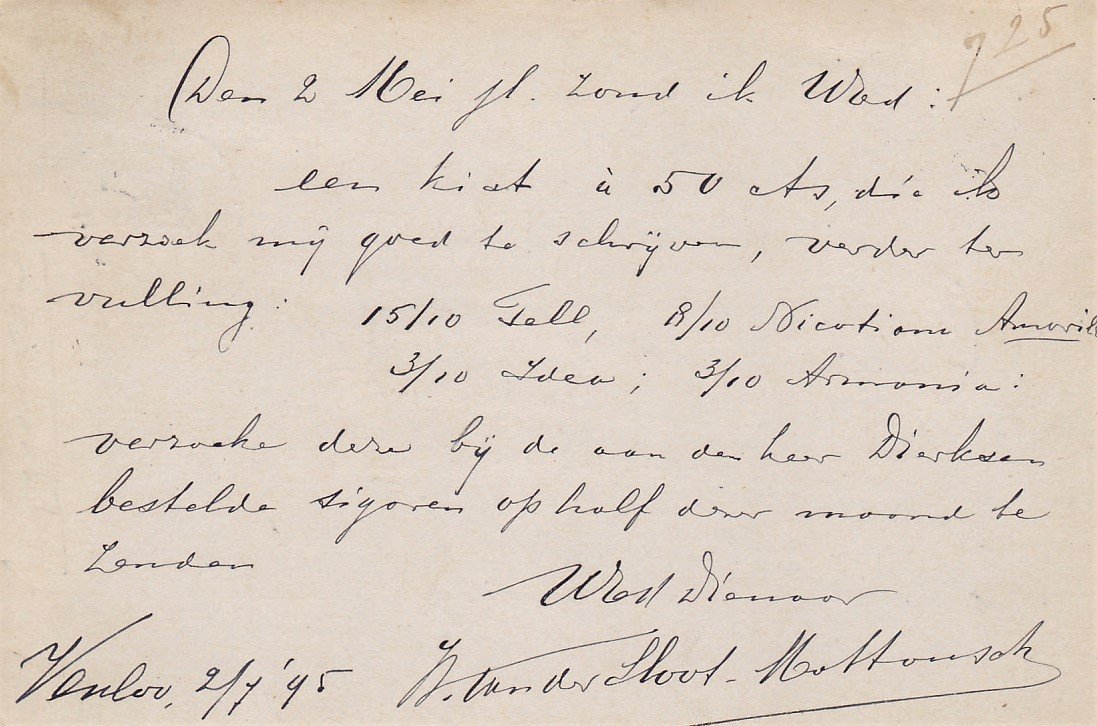 7 25
Den 2 Mei jl. zond ik UEd:
een kist à 50 cts, die ik
verzoek mij goed te schrijven, verder ter
vulling: 15/10 Tell, 8/10 Nicotiana
3/10 Idea; 3/10 Armonia:
verzoeke deze bij de aan den heer Dierksen
bestelde sigaren op half dezer maand te
zenden
UEd Dienaar
Venloo, 2/7 '95 van der Sloot-